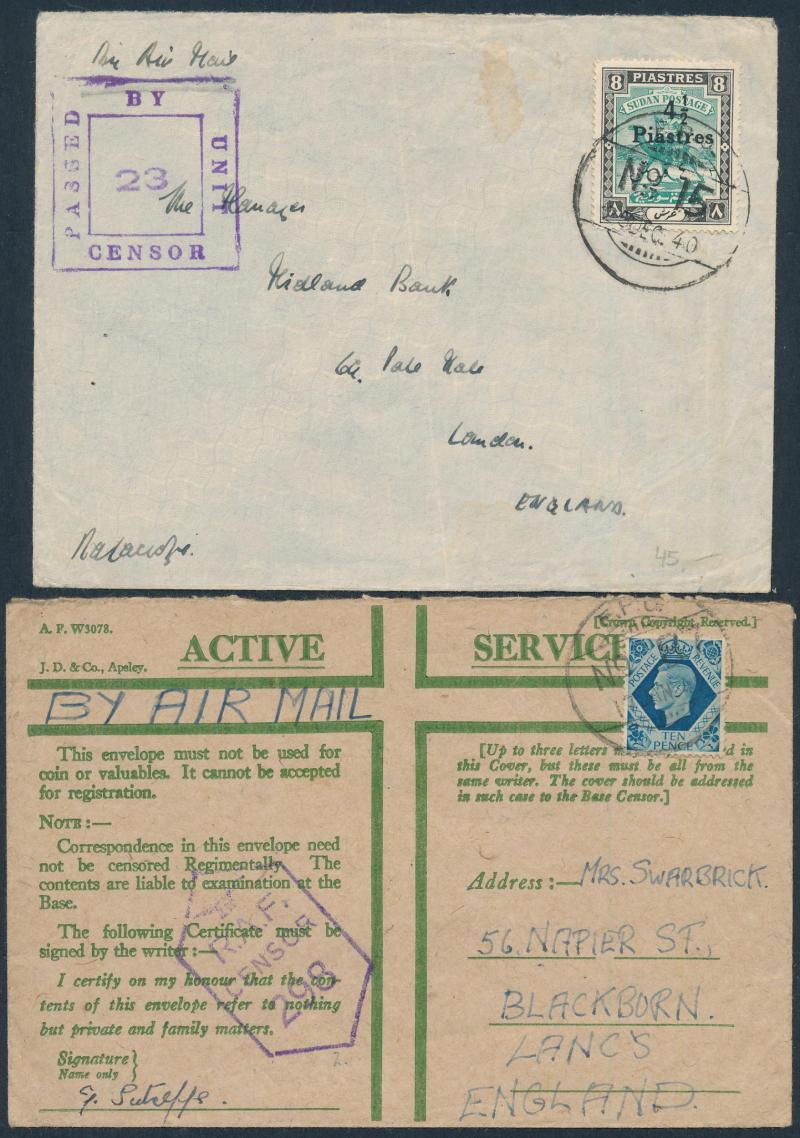 By Air Mail
PASSED
BY
UNIT
CENSOR
23
8 PIASTRES 8
SUDAN POSTAGE
4½
Piastres
No 15
DEC. 40
٨ ٨
The Manager
Midland Bank
Pall Mall
London.
ENGLAND.
45.-
A. F. W3078.
[Crown Copyright Reserved.]
ACTIVE SERVICE
J. D. & Co., Apsley.
BY AIR MAIL
POSTAGE REVENUE
TEN
PENCE
This envelope must not be used for
coin or valuables. It cannot be accepted
for registration.
NOTE:—
Correspondence in this envelope need
not be censored Regimentally. The
contents are liable to examination at the
Base.
The following Certificate must be
signed by the writer:—
I certify on my honour that the con-
tents of this envelope refer to nothing
but private and family matters.
Signature
Name only
Sutcliffe.
R.A.F.
CENSOR
298
2.
[Up to three letters in
this Cover, but these must be all from the
same writer. The cover should be addressed
in such case to the Base Censor.]
Address:— MRS. SWARBRICK.
56, NAPIER ST.,
BLACKBORN.
LANC'S
ENGLAND.